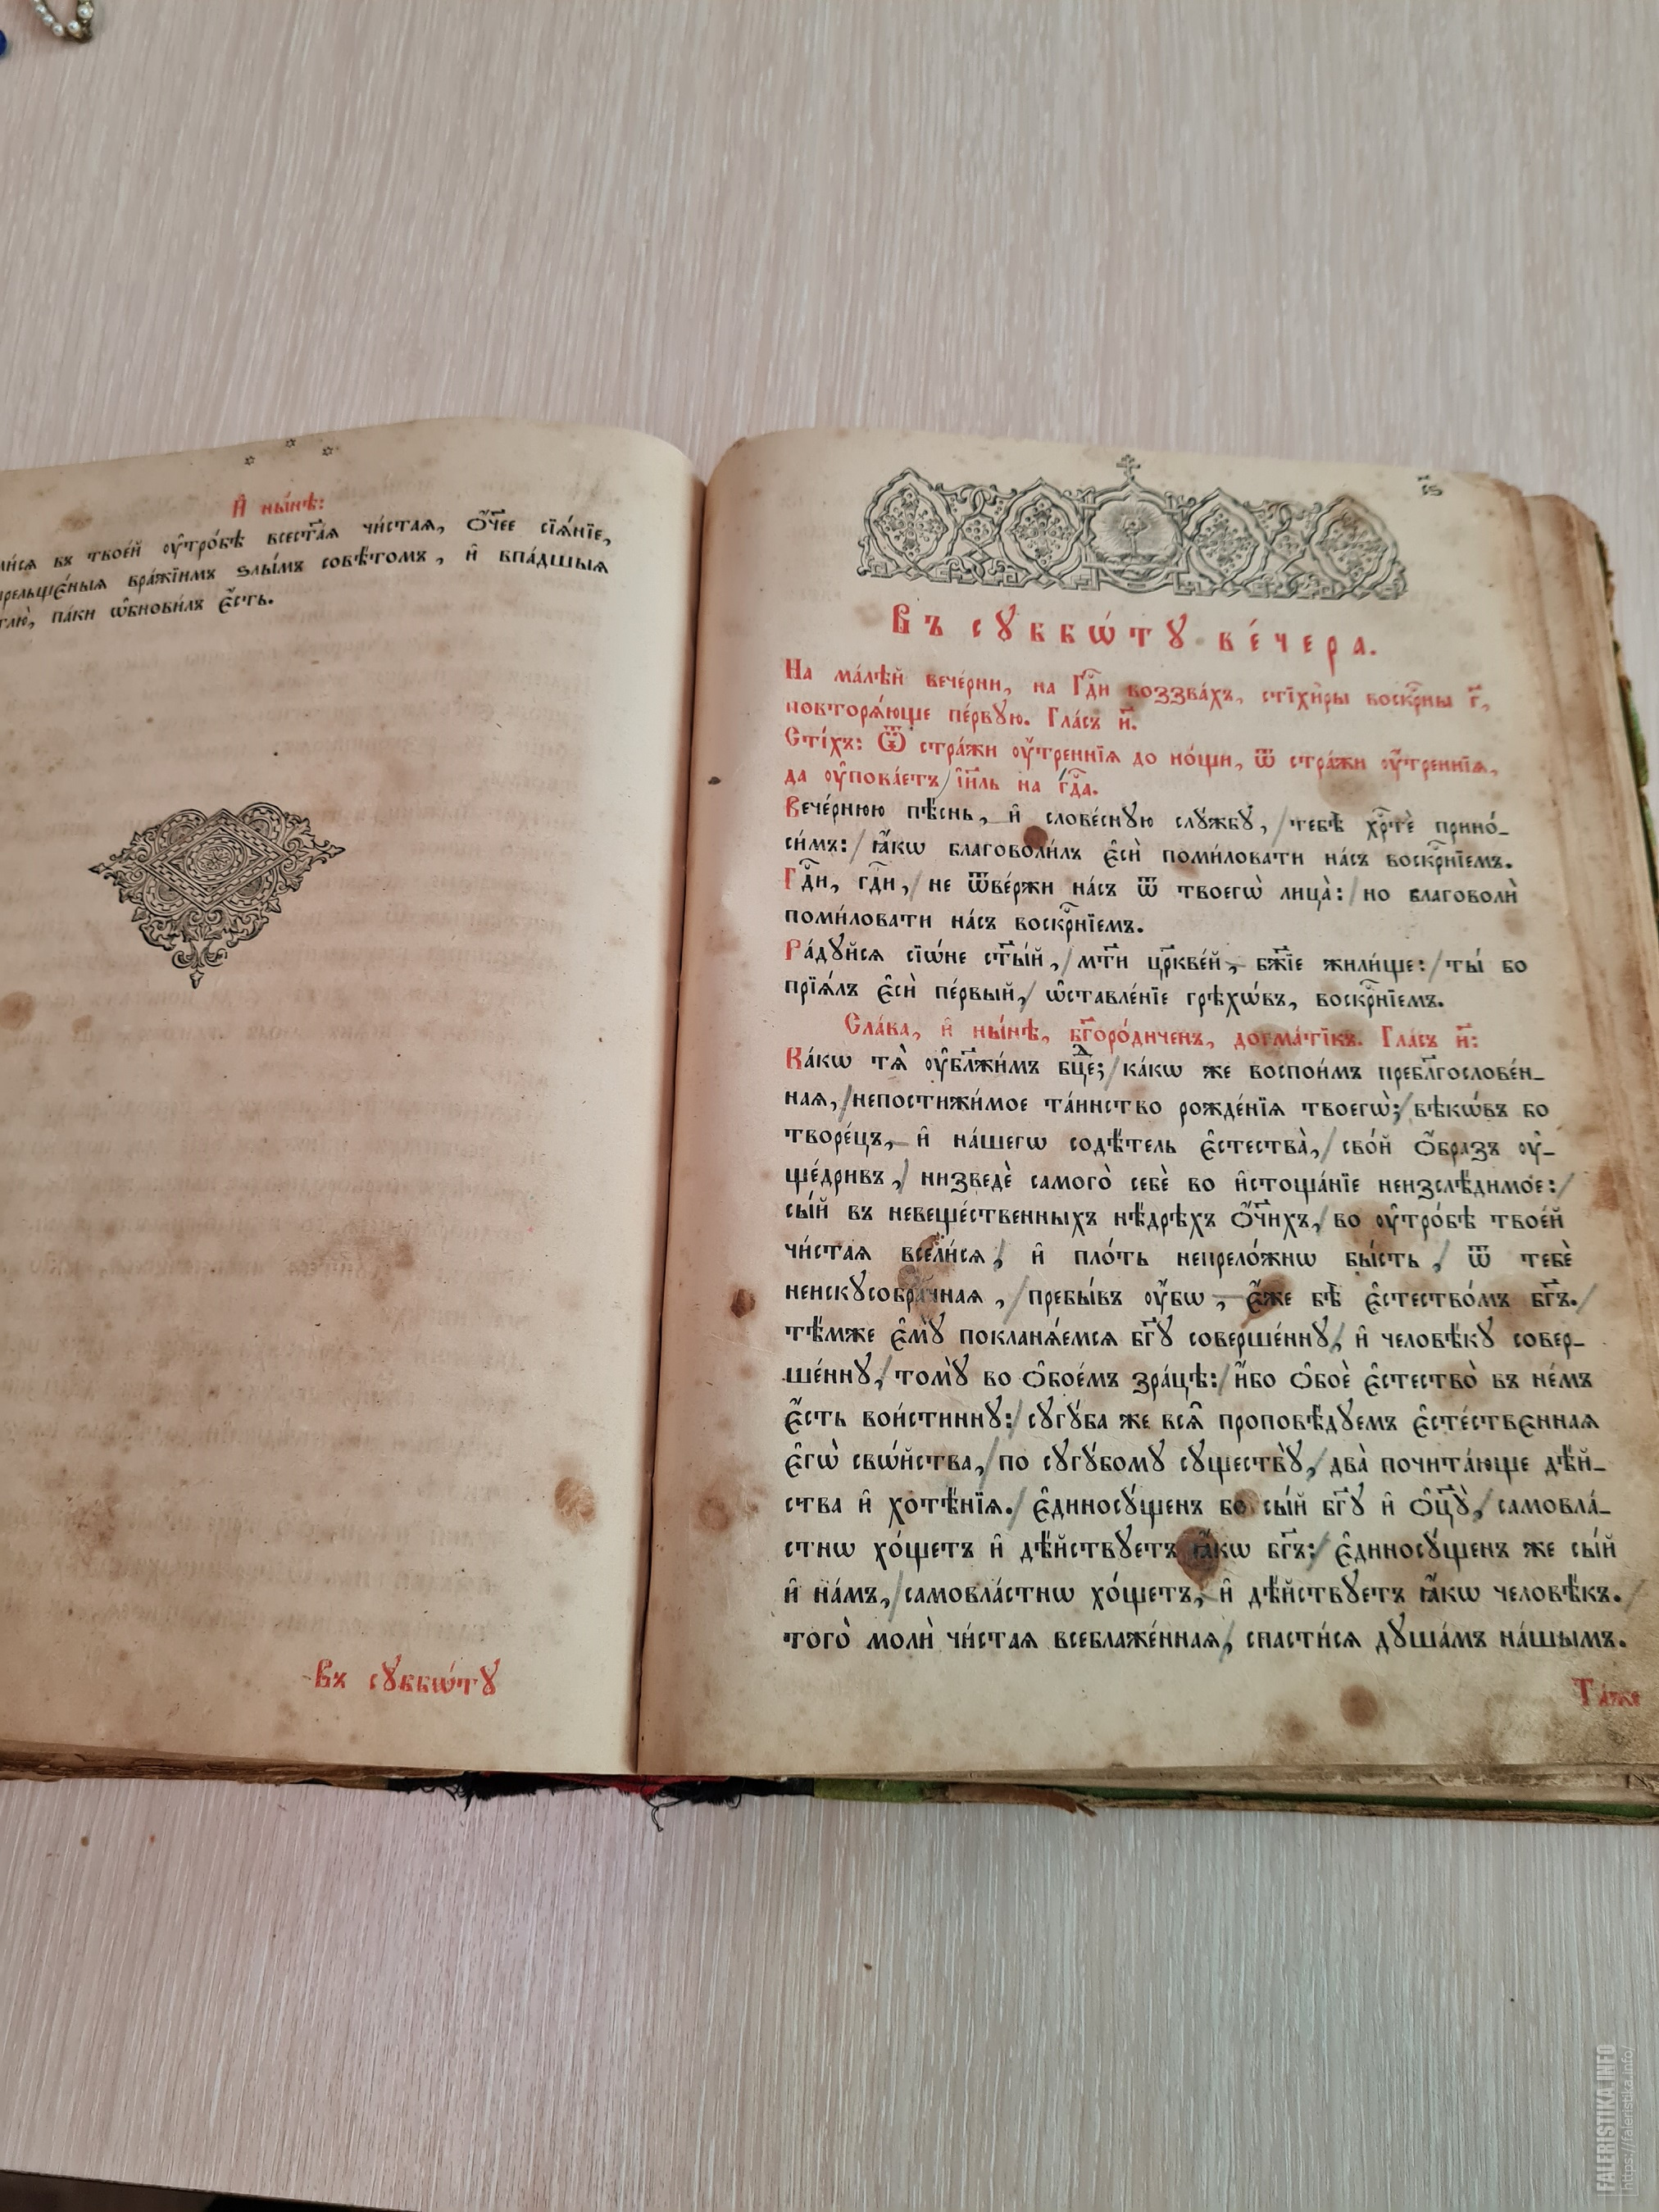 И҆ ны́нѣ:
въ твое́й ᲂу҆тро́бѣ всест҃а́я чи́стая, ѻ҆́ч҃ее сїѧ́нїе,
вра́жїимъ ѕлы́мъ совѣ́томъ, и҆ впа́дшыѧ
па́ки ѡ҆бнови́лъ є҆́сть.
Въ сꙋббѡ́тꙋ
ѕ҃і
Въ сꙋббѡ́тꙋ ве́чера.
На ма́лѣй вече́рни, на Гдⷭ҇и воззва́хъ, стїхи̑ры воскрⷭ҇ны г҃,
повторѧ́юще пе́рвꙋю. Гла́съ и҃.
Сті́хъ: Ѿ стра́жи ᲂу҆́треннїѧ до но́щи, ѿ стра́жи ᲂу҆́треннїѧ,
да ᲂу҆пова́етъ і҆и҃ль на гдⷭ҇а.
Вече́рнюю пѣ́снь, и҆ слове́снꙋю слꙋ́жбꙋ, тебѣ̀ хрⷭ҇тѐ прино́-
си́мъ: ꙗ҆́кѡ благоволи́лъ є҆сѝ поми́ловати на́съ воскрⷭ҇нїемъ.
Гдⷭ҇и, гдⷭ҇и, не ѿве́ржи на́съ ѿ твоегѡ̀ лица̀: но благоволѝ
поми́ловати на́съ воскрⷭ҇нїемъ.
Ра́дꙋйсѧ сїѡ́не ст҃ы́й, мт҃и цр҃кве́й, бж҃їе жили́ще: ты́ бо
прїѧ́лъ є҆сѝ пе́рвый, ѡ҆ставле́нїе грѣхѡ́въ, воскрⷭ҇нїемъ.
Сла́ва, и҆ ны́нѣ, бг҃оро́диченъ, догма́тїкъ. Гла́съ и҃:
Ка́кѡ тѧ̀ ᲂу҆бл҃жи́мъ бцⷣе; ка́кѡ же воспои́мъ пребл҃гослове́н-
ная, непостижи́мое та́инство рожде́нїѧ твоегѡ̀; вѣкѡ́въ бо
творе́цъ, и҆ на́шегѡ содѣ́тель є҆стества̀, сво́й ѻ҆́бразъ ᲂу҆-
ще́дривъ, низведѐ самого̀ себѐ во и҆стоща́нїе неизслѣ́димое:
сы́й въ невеще́ственныхъ нѣ́дрѣхъ ѻ҆́ч҃ихъ, во ᲂу҆тро́бѣ твое́й
чи́стая всели́сѧ, и҆ пло́ть непрело́жнѡ бы́сть, ѿ тебѐ
неискꙋсобра́чная, пребы́въ ᲂу҆́бѡ, є҆́же бѣ̀ є҆стество́мъ бг҃ъ.
тѣ́мже є҆мꙋ̀ покланѧ́емсѧ бг҃ꙋ соверше́ннꙋ, и҆ человѣ́кꙋ совер-
ше́ннꙋ, томꙋ̀ во ѻ҆бое́мъ зра́цѣ: и҆́бо ѻ҆боѐ є҆стество̀ въ не́мъ
є҆́сть вои́стиннꙋ: сꙋгꙋ́ба же всѧ̑ проповѣ́дꙋемъ є҆сте́ствєнная
є҆гѡ̀ свѡ́йства, по сꙋгꙋ́бомꙋ сꙋществꙋ̀, два̀ почита́юще дѣ́й-
ства и҆ хотѣ́нїѧ. є҆диносꙋ́щенъ бо сы́й бг҃ꙋ и҆ ѻ҆ц҃ꙋ̀, самовла́-
стнѡ хо́щетъ и҆ дѣ́йствꙋетъ ꙗ҆́кѡ бг҃ъ: є҆диносꙋ́щенъ же сы́й
и҆ на́мъ, самовла́стнѡ хо́щетъ, и҆ дѣ́йствꙋетъ ꙗ҆́кѡ человѣ́къ.
того̀ молѝ чи́стая всеблаже́нная, спасти́сѧ дꙋша́мъ на́шымъ.
Та́же
FALERISTIKA.INFO
https://faleristika.info/